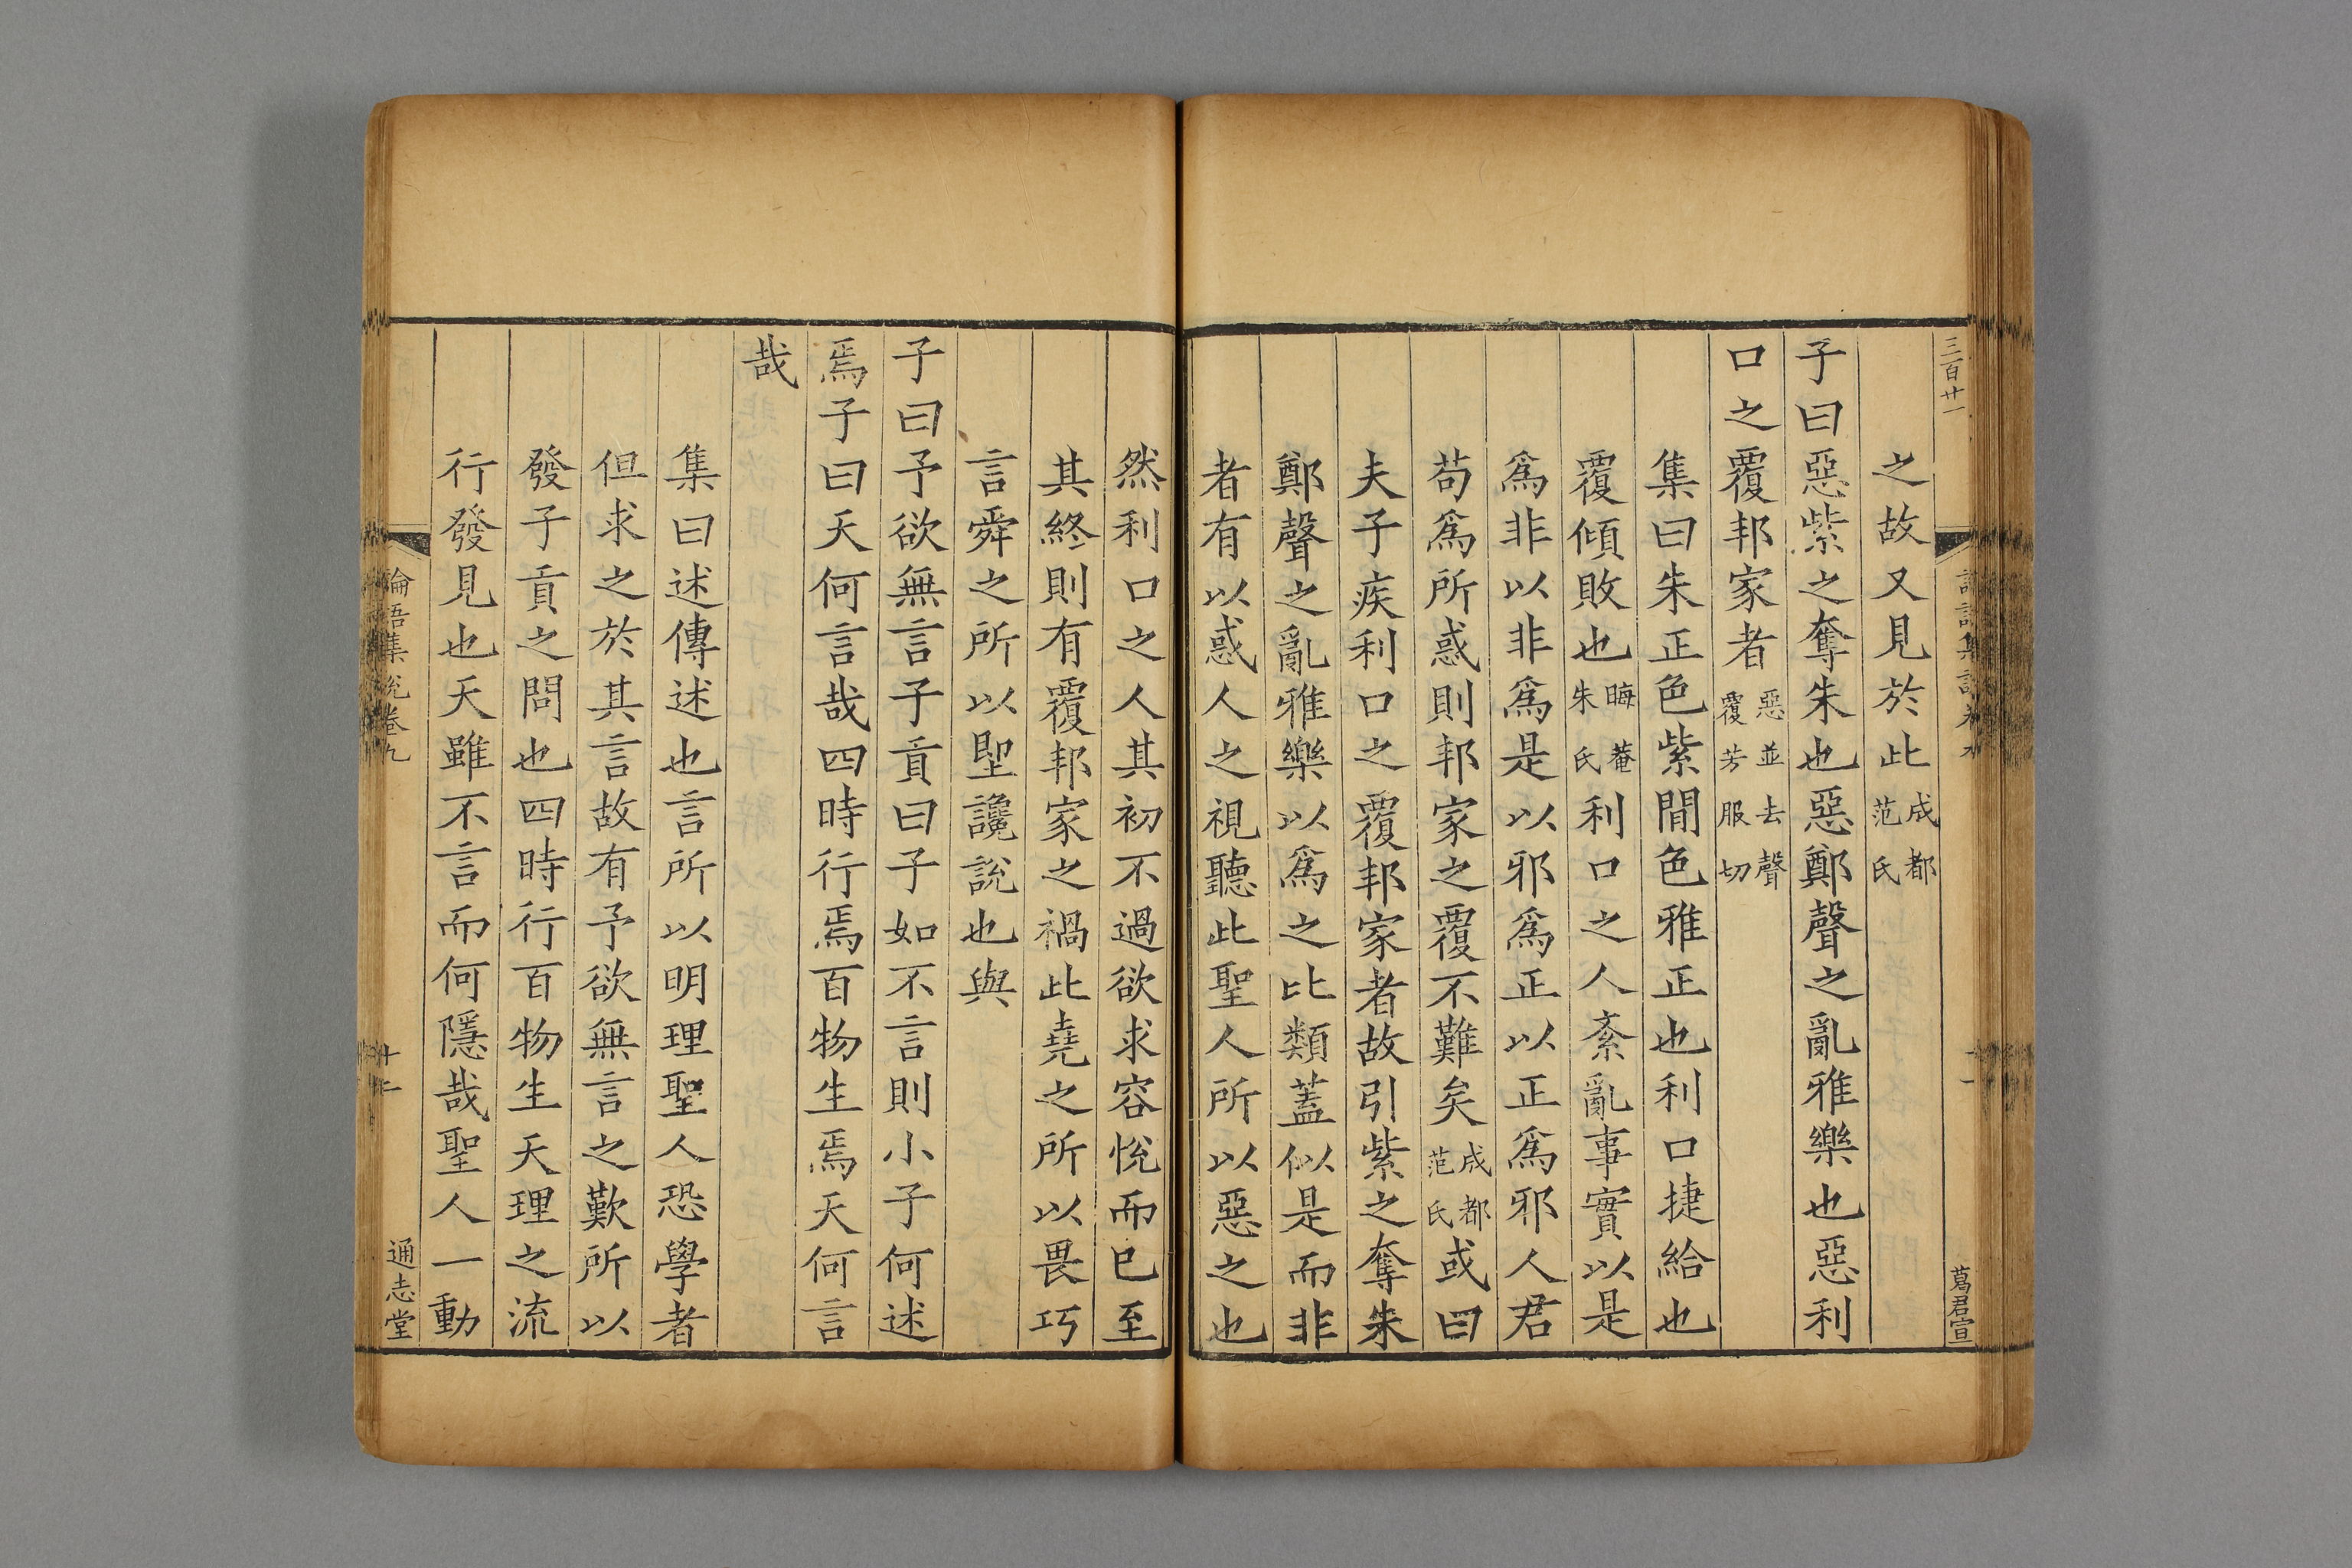 三百廿一
葛君宣
之故又見於此成都范氏
子曰惡紫之奪朱也惡鄭聲之亂雅樂也惡利
口之覆邦家者惡並去聲覆芳服切
集曰朱正色紫閒色雅正也利口捷給也
覆傾敗也晦菴朱氏利口之人紊亂事實以是
爲非以非爲是以邪爲正以正爲邪人君
苟爲所惑則邦家之覆不難矣成都范氏或曰
夫子疾利口之覆邦家者故引紫之奪朱
鄭聲之亂雅樂以爲之比類蓋似是而非
者有以惑人之視聽此聖人所以惡之也
然利口之人其初不過欲求容悅而已至
其終則有覆邦家之禍此堯之所以畏巧
言舜之所以聖讒說也與
子曰予欲無言子貢曰子如不言則小子何述
焉子曰天何言哉四時行焉百物生焉天何言
哉
集曰述傳述也言所以明理聖人恐學者
但求之於其言故有予欲無言之歎所以
發子貢之問也四時行百物生天理之流
行發見也天雖不言而何隱哉聖人一動
論語集說卷九
廿二
通志堂